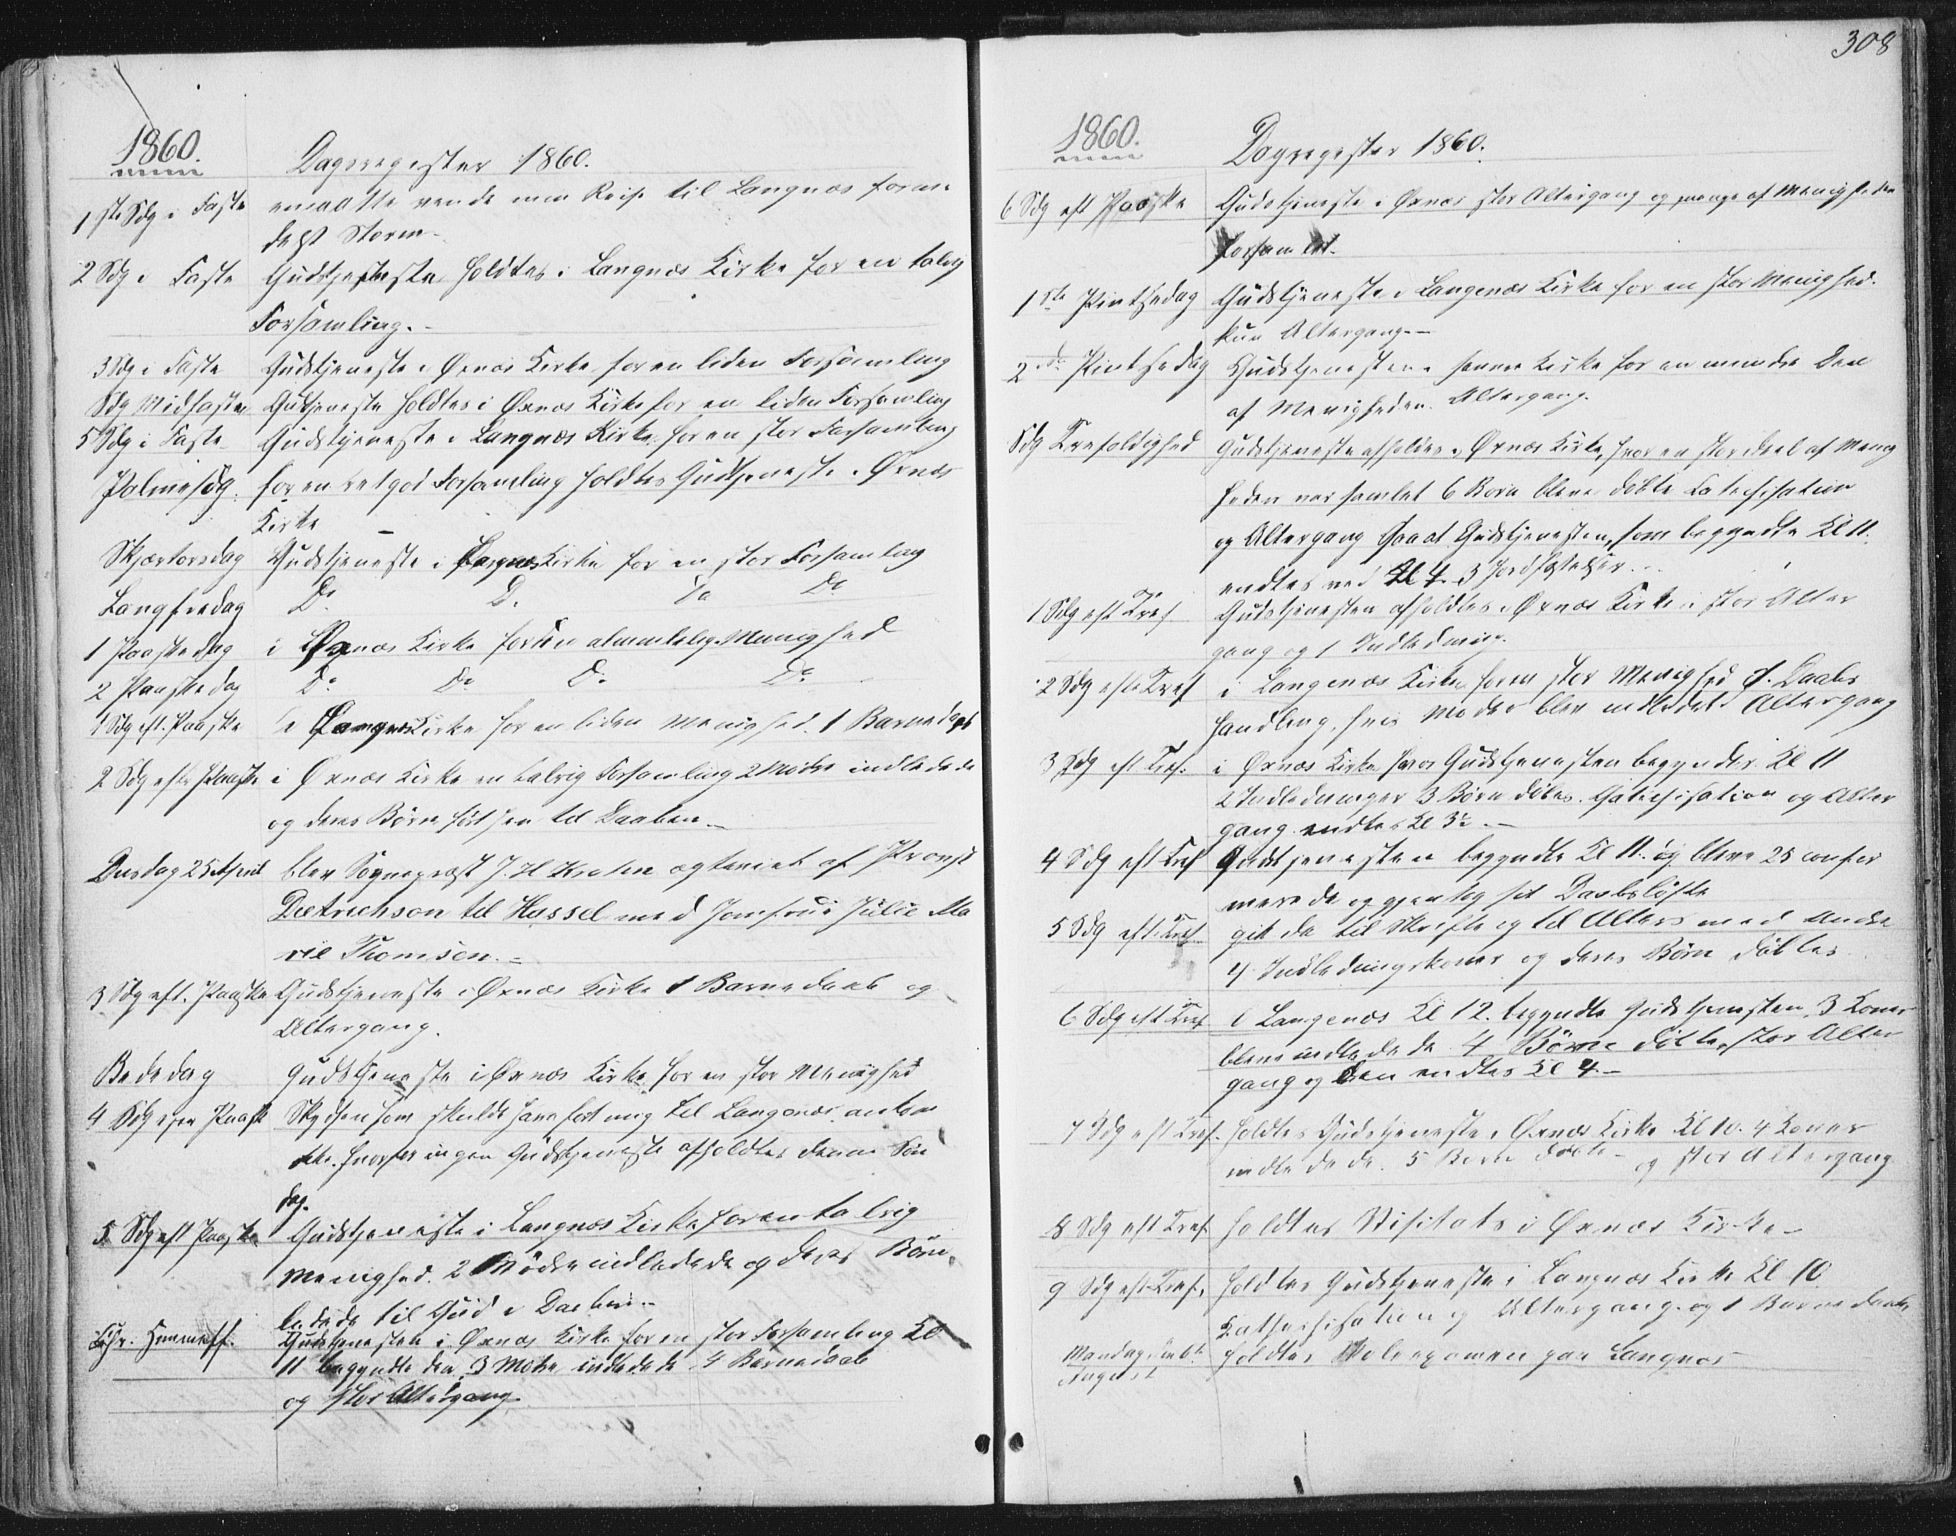 1860.
Dagsregister 1860.
1ste Sdg i Faste maatte vende min Reise til Langnæs formedelst Storm.
2 Sdg i Faste Gudstjeneste holdtes i Langnæs Kirke for en talrig
Forsamling.
3 Sdg i Faste Gudstjeneste i Øxnæs Kirke for en liden Forsamling
Sdg Midfaste Gudstjeneste holdtes i Øxnæs Kirke for en liden Forsamling
5 Sdg i Faste Gudstjeneste i Langnæs Kirke for en stor Forsamling
Palmesøg. for en ret god Forsamling holdtes Gudstjeneste i Øxnæs
Kirke –
Skjærtorsdag Gudstjeneste i Langnæs Kirke for en stor Forsamling
Langfredag Do. Do. Do Do
1 Paaskedag i Øxnæs Kirke for en almindelig Menighed
2 Paaskedag Do Do Do Do
1 Sdg eft. Paaske i Langnæs Kirke for en liden Menighed. 1 Barnedaab
2 Sdg efter Paaske i Øxnæs Kirke en talrig Forsamling 2 Mødre indledede
og deres Børn til Daaben.
Onsdag 25 April blev Sognepræst J. H. ægteviet af Provst
Dietrichson til Hassel med Jomfrue Julie Ma
rie Thomsen.
3 Sdg eft. Paaske Gudstjeneste i Øxnæs Kirke 1 Barnedaab og
Altergang.
Bededag Gudstjeneste i Øxnæs Kirke for en stor Menighed
4 Sdg efter Paaske Skydsen som skulde have ført mig til Langenæs ankom
ikke, hvorfor ingen Gudstjeneste afholdtes denne Søn
dag.
5 Sdg eft Paaske Gudstjeneste i Langnæs Kirke for en talrig
Menighed. 2 Mødre indledede og deres Børn
til Gud i Daaben.
Chr. Himmelf. Gudstjenesten i Øxnæs Kirke for en stor Forsamling Kl
11 begyndte den 3 Mødre indledede 4 Barnedaab
og stor Altergang
308
1860.
Dagregister 1860.
6 Sdg eft Paaske Gudstjeneste i Øxnæs stor Altergang og mange af Menigheden
forsamlet.
1ste Pintsedag Gudstjeneste i Langenæs Kirke for en stor Menighed.
kun Altergang.–
2de Pintsedag Gudstjenesten i samme Kirke for en mindre Deel
af Menigheden. Altergang.
Sdg Trefoldighed Gudstjeneste afholdes i Øxnæs Kirke, hvor en stor deel af Menig
heden var samlet 6 Børn bleve døbte Catechisation
og Altergang Gudstjenesten, som begyndte Kl 11.
endtes ved Kl 4. 3 Jordfæstelser...
1 Sdg eft Tref Gudstjenesten afholdtes i Øxnæs Kirke i stor Alter
gang og 1 Indledning.
2 Sdg eft Tref i Langenæs Kirke for en stor Menighed 1. Daabs
handling, hvis Moder blev indledet. Altergang
3 Sdg eft Tref. i Øxnæs Kirke hvor Gudstjenesten begynder Kl 11
2 Indledninger 3 Børn døbes. Catechisation og Alter
gang. endtes Kl 3½ –
4 Sdg eft Tref Gudstjenesten begyndte Kl 11. og bleve 25 confir
merede og gjentog sit Daabsløfte
5 Sdg eft Tref gik de til Skrifte og til Alters med Andre
4 Indledningskoner og deres Børn døbtes
6 Sdg eft Tref i Langenæs Kl 12. begyndte Gudstjenesten. 3 Koner
bleve indledede. 4 Børn døbte, stor Alter
gang og den endtes Kl 4.–
7 Sdg eft Tref. holdtes Gudstjeneste i Øxnæs Kirke Kl 10. 4 Koner
indledede. 5 Børn døbte – og stor Altergang
8 Sdg eft Tref. holdtes Visitats i Øxnæs Kirke–
9 Sdg eft Tref. holdtes Gudstjeneste i Langnæs Kirke Kl 10
Kathechisation og Altergang. og 1 Barne daab
Mandag August holdtes paa Langnæs